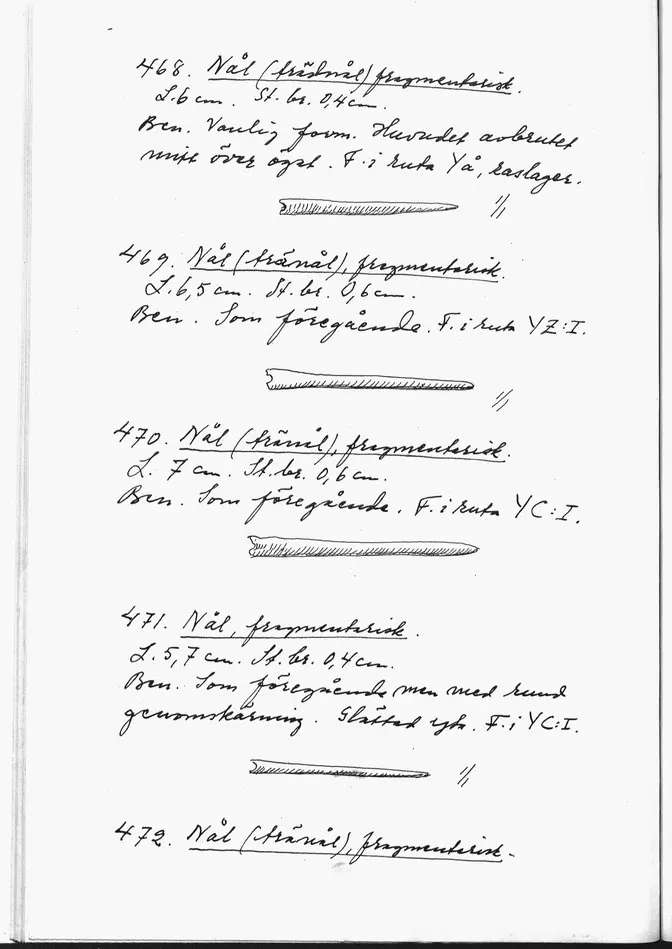 468. Nål (trädnål) fragmentarisk.
L. 6 cm. St. br. 0,4 cm.
Ben. Vanlig form. Huvudet avbrutet
mitt över ögat. F. i ruta Yå, raslager.
1/1
469. Nål (tränål), fragmentarisk.
L. 6,5 cm. St. br. 0,6 cm.
Ben. Som föregående. F. i ruta YZ:I.
1/1
470. Nål (tränål), fragmentarisk.
L. 7 cm. St. br. 0,6 cm.
Ben. Som föregående. F. i ruta YC:I.
471. Nål, fragmentarisk.
L. 5,7 cm. St. br. 0,4 cm.
Ben. Som föregående men med rund
genomskärning. Glättad yta. F. i YC:I.
1/1
472. Nål (tränål), fragmentarisk.